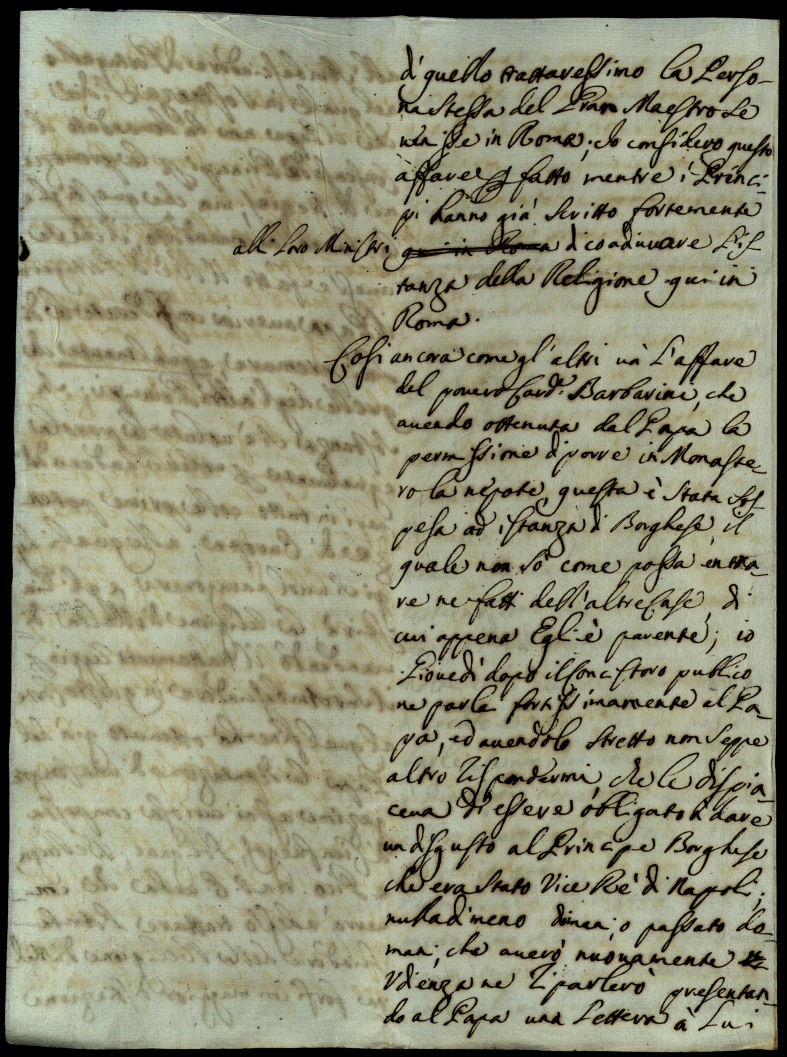 di quello trattaressimo la Perso-
na stessa del Gran Maestro se
venisse in Roma; Io considero questo
affare p fatto, mentre i Princi-
pi hanno già scritto fortemente
alli loro Ministri qui in Roma di coadiuvare l'is
tanza della Religione qui in
Roma.
Così ancora come gl'altri và l'affare
del povero Card.e Barbarini, che
avendo ottenuta dal Papa la
permissione di porre in Monaste-
ro la nepote, questa è stata sos
pesa ad istanza di Borghese il
quale non sò come possa entra-
re ne fatti dell'altre Case, di
cui appena Egli è parente; io
Giovedì dopo il Concistoro publico
ne parlai fortissimamente al Pa-
pa, ed avendolo stretto non seppe
altro rispondermi, che le dispia-
ceva di essere obligato à dare
un disgusto al Principe Borghese
che era stato Vice Rè di Napoli;
nulladimeno diman, o passato do-
man, che averò nuovamente
Udienza ne riparlerò presentan-
do al Papa una Lettera à Lui